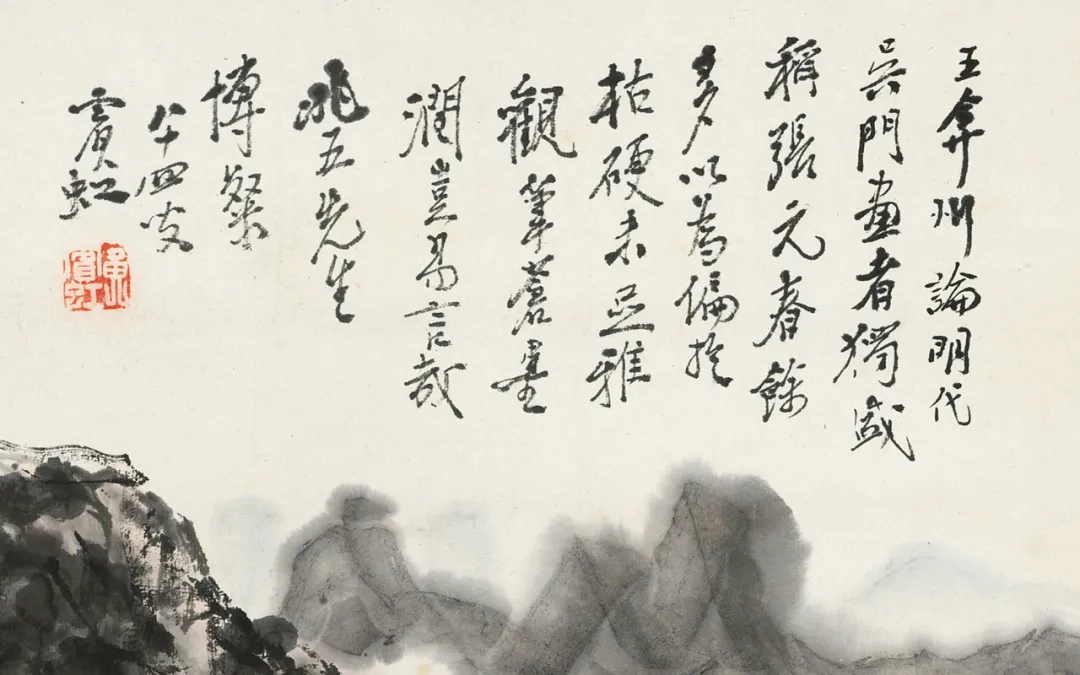 王弇州論明代
吳門畫者獨盛
稱張元春餘
多以爲偏於
枯硬未足雅
觀筆蒼墨
潤豈易言哉
兆五先生
博粲
八十四叟
賓虹
黃賓虹